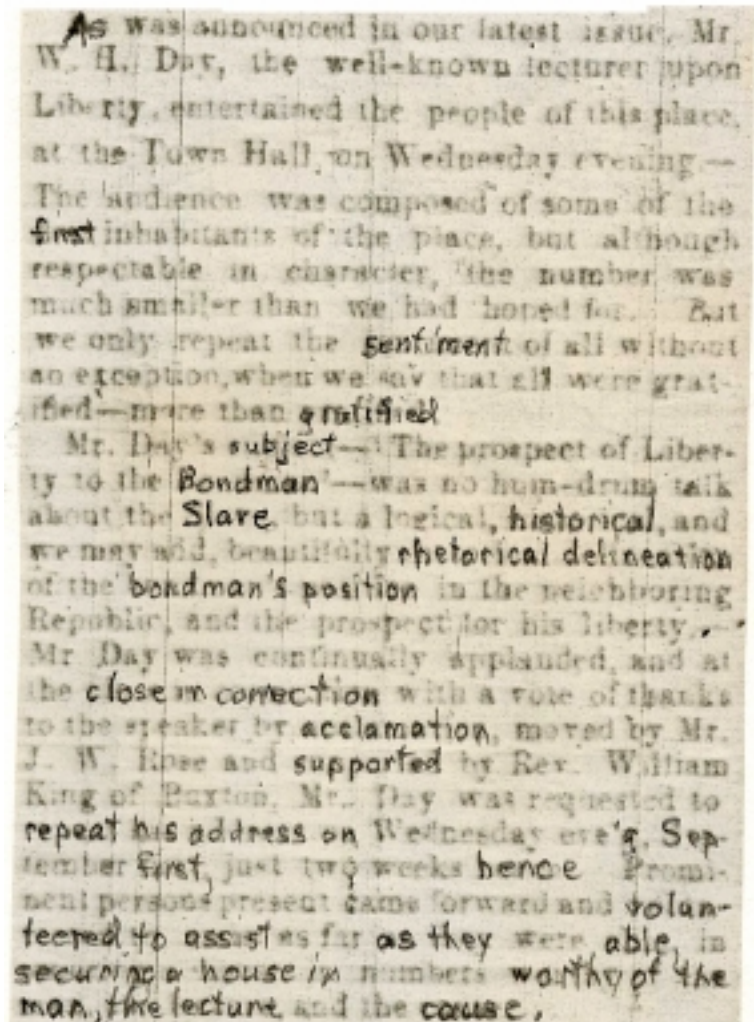 As was announced in our latest issue, Mr.
W. H. Day, the well-known lecturer upon
Liberty, entertained the people of this place,
at the Town Hall, on Wednesday evening.—
The audience was composed of some of the
first inhabitants of the place, but although
respectable in character, the number was
much smaller than we had hoped for. But
we only repeat the sentiment of all without
an exception, when we say that all were grat-
ified—more than gratified
Mr. Day's subject—"The prospect of Liber-
ty to the Bondman"—was no hum-drum talk
about the Slave but a logical, historical, and
we may add, beautifully rhetorical delineation
of the bondman's position in the neighboring
Republic, and the prospect for his liberty.—
Mr Day was continually applauded, and at
the close in correction with a vote of thanks
to the speaker by acclamation, moved by Mr.
J. W. Rose and supported by Rev. William
King of Buxton, Mr. Day was requested to
repeat his address on Wednesday eve'g, Sep-
tember first, just two weeks hence Promi-
nent persons present came forward and volun-
teered to assist as far as they were able, in
securing a house in numbers worthy of the
man, the lecture and the cause.